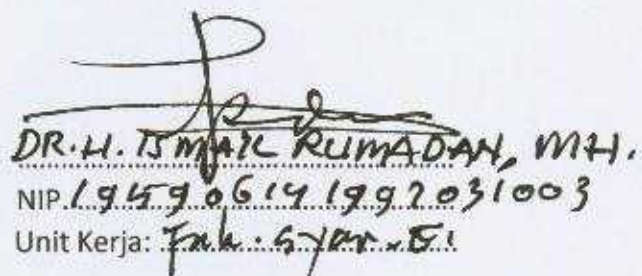 DR. H. ISMAIL RUMADAN, MH.
NIP. 19590614 1992031003
Unit Kerja: Fak. Syar. EI